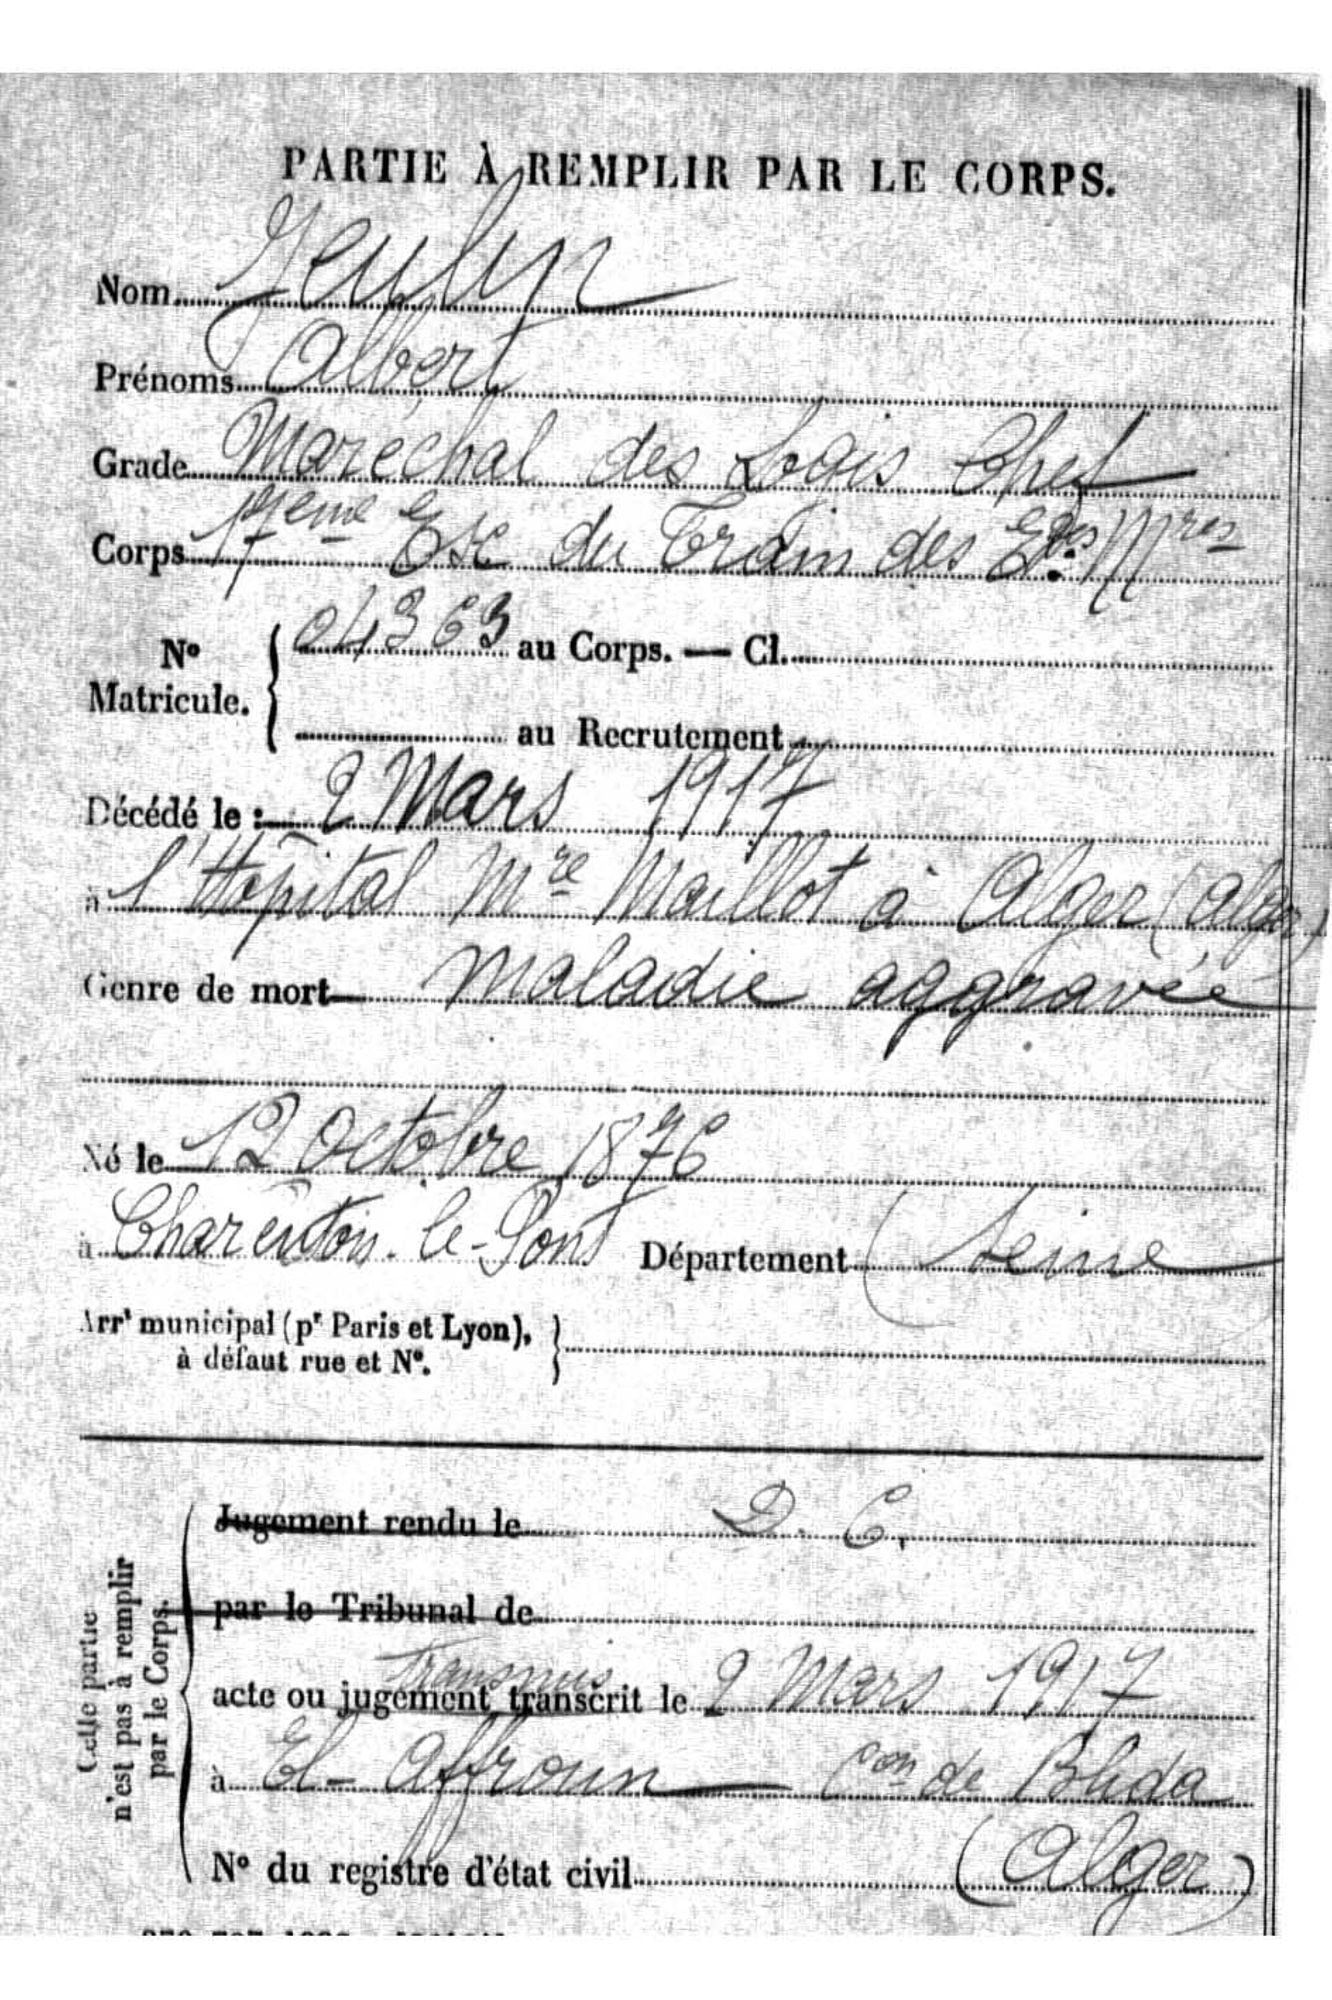 PARTIE À REMPLIR PAR LE CORPS.
Nom Jeulin
Prénoms Albert
Grade Maréchal des Logis Chef
Corps 17ème Esc du Train des Eges Mres
No Matricule. { 04363 au Corps. — Cl.
au Recrutement
Décédé le : 2 Mars 1917
à l'Hôpital Mre Maillot à Alger (Alger)
Genre de mort maladie aggravée
Né le 12 Octobre 1876
à Charenton-le-Pont Département (Seine
Arrt municipal (pr Paris et Lyon), à défaut rue et No. }
Cette partie n'est pas à remplir par le Corps.
Jugement rendu le D. C.
par le Tribunal de
transmis
acte ou jugement transcrit le 2 Mars 1917
à El-Affroun Con de Blida
No du registre d'état civil (Alger)